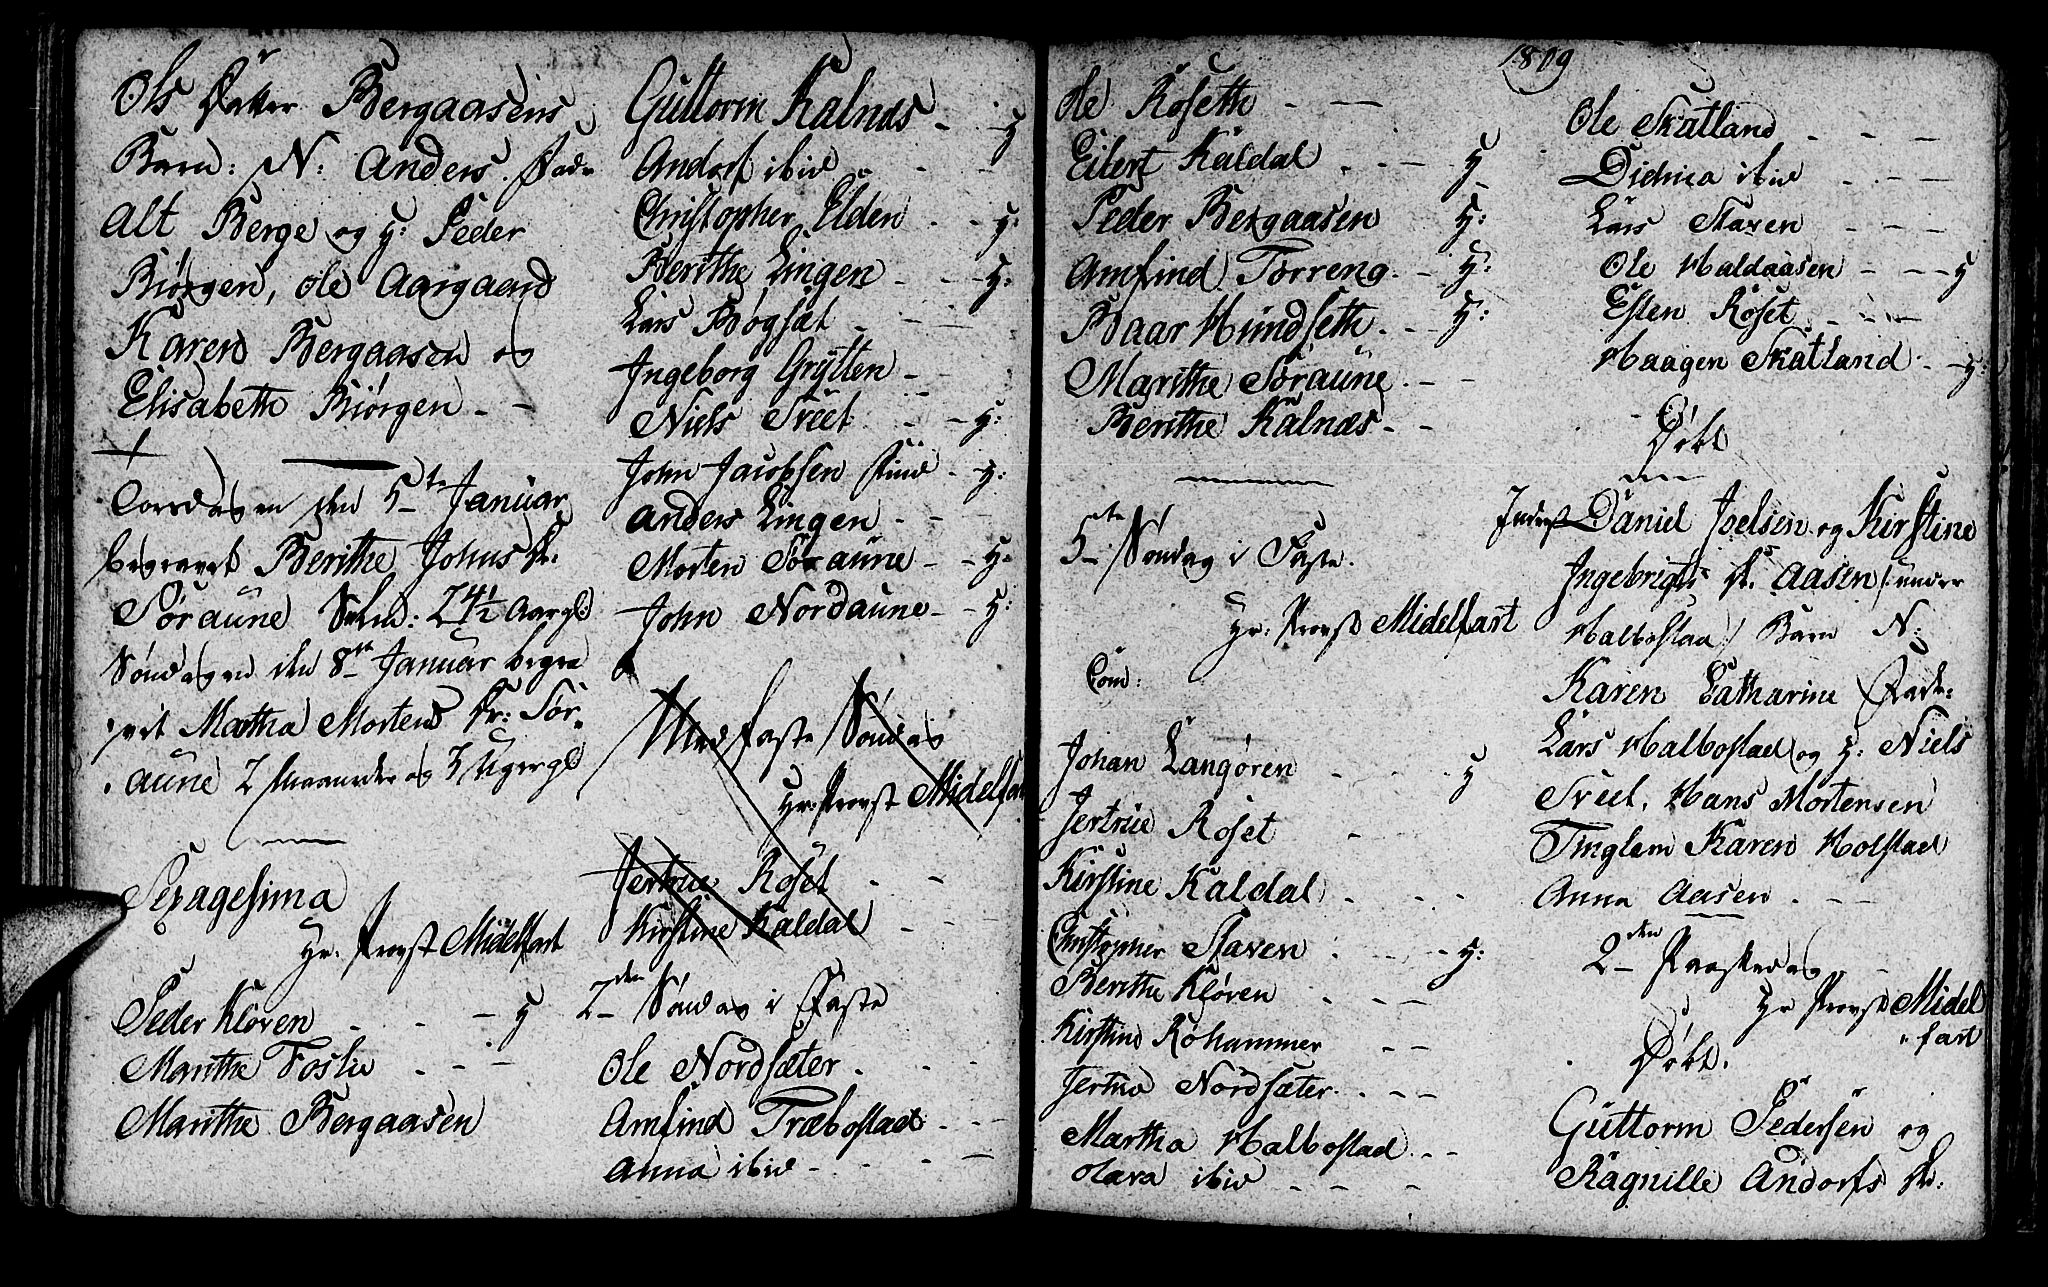 Ols Datter Bergaasens
Barn: N: Anders. Fad:
Alt Berge og H: Peder
Biörgen, Ole Aargaard
Karen Bergaasen og
Elisabeth Biörgen - -
Torsdagen den 5te Januar
begravet Berithe Johns dr.
Söraune Salvd: 74½ Aar gl:
Söndagen den 8de Januar begra
vet Martha Mortens Dr: Sör-
aune 2 Maaneder og 3 Uger gl
Sexagesima
Hr. Provst Midelfart
Peder Klöven - - - H
Marithe Foslie - - -
Marithe Bergaasen
Guttorm Kalnæs - - H
Andorf ibid - - -
Christopher Elden - - H:
Berithe Lingen - - - H:
Lars Bøgsæt - - -
Ingeborg Grytten - -
Niels Treet - - H:
John Jacobsen - - H:
Anders Lingen - - -
Morten Söraune - - H:
John Nordaune - - H:
Midfaste Søndag
Hr: Provst Midelfart
Jertrue Röset - -
Kirstine Kaldal - -
2den Søndag i Faste
Ole Nordsæter - - -
Amfind Træbostad - - -
Anna ibid - - - -
1809
Ole Röseth - -
Eilert Kaldal - - - H
Peder Bergaasen H:
Amfind Torreng - - H:
Baar Hundseth - - H:
Marithe Söraune - - -
Berithe Kalnæs - -
5te Søndag i Faste.
Hr: Provst Midelfart
Com:
Johan Langören - - - H
Jertrue Röset -
Kirstine Kaldal - - -
Christopher Staven - - - H:
Berithe Klöven - - -
Kirstine Röhammer - -
Jertrue Nordsæter - - -
Martha Halbostad - - -
Olava ibid - - - -
Ole Skatland - - -
Didrica ibid - - -
Lars Staven - - -
Ole Haldaasen - - - H
Esten Röset - - -
Haagen Skatland - - H:
Døbt
Daniel Joelsen og Kirstine
Ingebrigts D. Aasen /: under
Halbostad / Barn N:
Karen Catharine Fadr:
Lars Halbostad og H: Niels
Treet, Hans Mortensen
Tinglem Karen Holstad
Anna Aasen - - -
2den Paaskedag
Hr Provst Midel
fart
Døbt.
Guttorm Pedersen og
Ragnille Andorfs Dr: